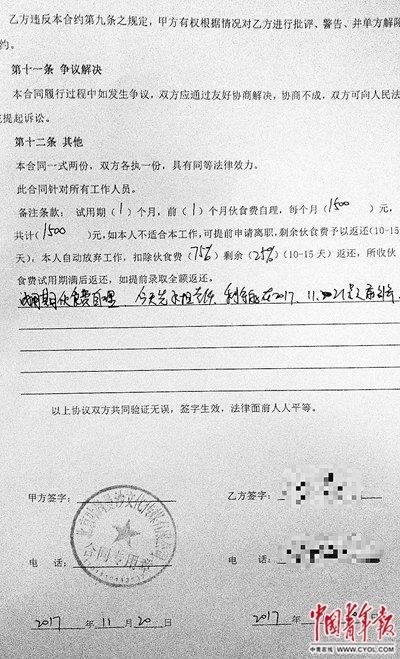 乙方违反本合约第九条之规定，甲方有权根据情况对乙方进行批评、警告、并单方解除
约。
第十一条 争议解决
本合同履行过程中如发生争议，双方应通过友好协商解决，协商不成，双方可向人民法
提起诉讼。
第十二条 其他
本合同一式两份，双方各执一份，具有同等法律效力。
此合同针对所有工作人员。
备注条款： 试用期（1）个月，前（1）个月伙食费自理，每个月（1500）元，
共计（1500）元，如本人不适合本工作，可提前申请离职，剩余伙食费予以返还（10-15
天），本人自动放弃工作，扣除伙食费（75%）剩余（25%）（10-15 天）返还，所收伙
食费试用期满后返还，如提前录取全额返还。
试用期伙食费自理 今天先 在2017.11.21
以上协议双方共同验证无误，签字生效，法律面前人人平等。
甲方签字： 乙方签字：
合同专用章
电 话： 电 话：
2017 年 11 月 20 日 2017 年
中国青年报
中青在线 WWW.CYOL.COM